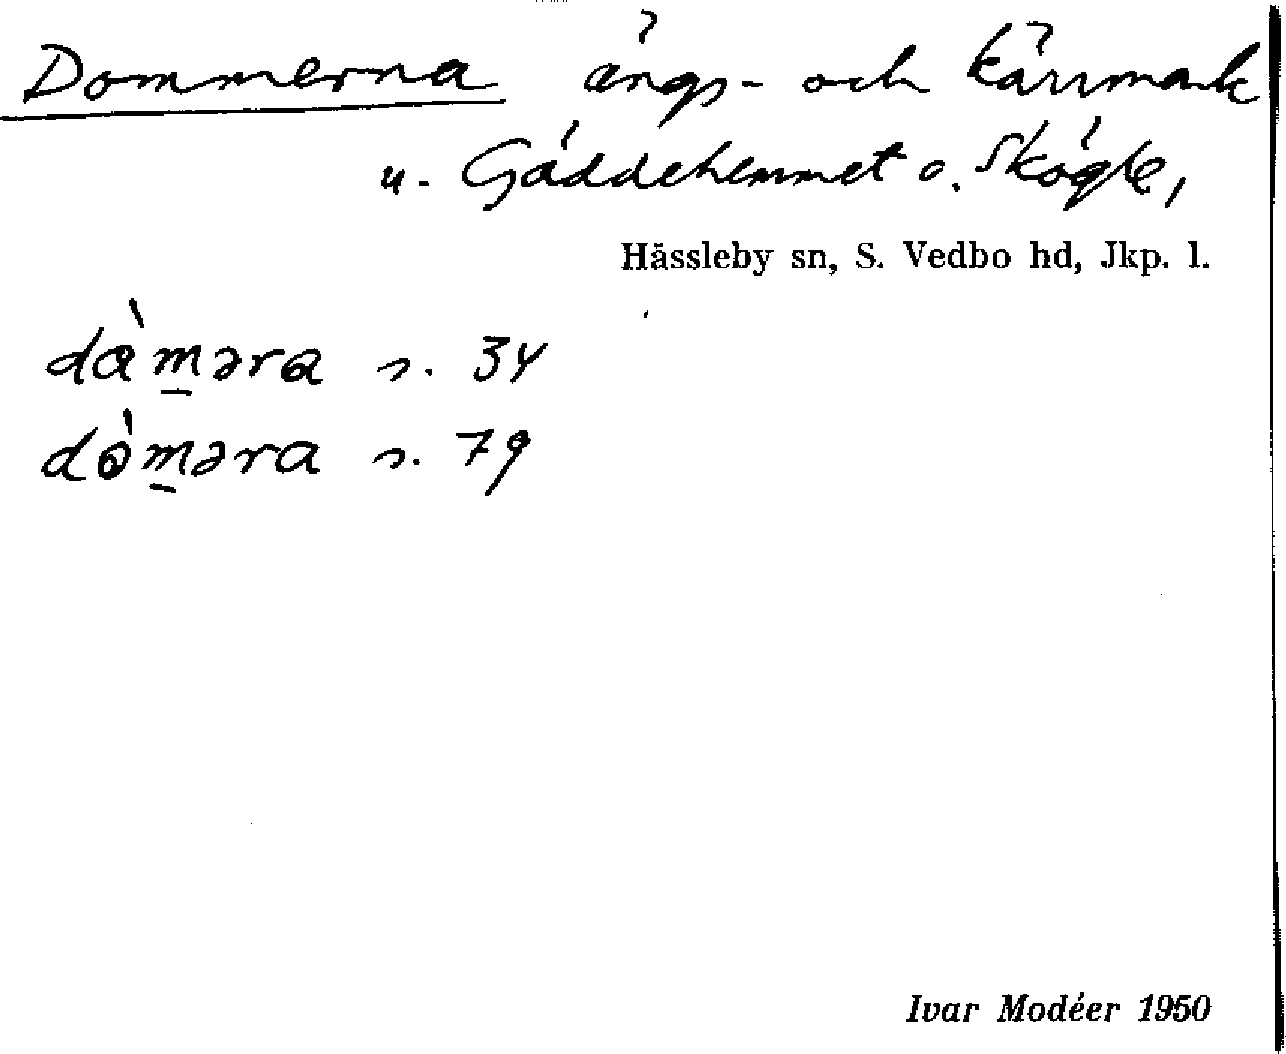 Dommerna ängs- och kärrmark
u. Gäddehemmet o. Skögle,
Hässleby sn, S. Vedbo hd, Jkp. l.
dàm̱əra s. 34
dòm̱əra s. 79
Ivar Modéer 1950